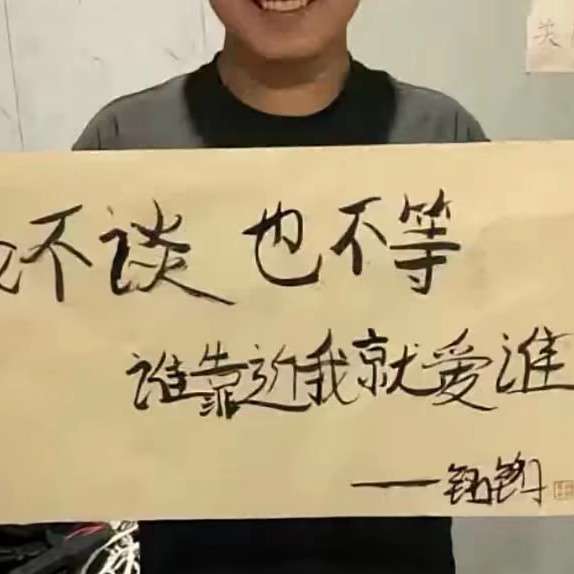 不谈 也不等
谁靠近我就爱谁